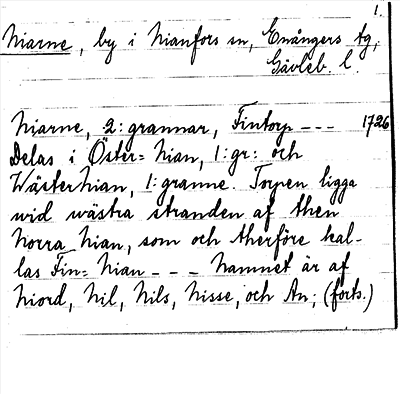 1.
Niarne, by i Nianfors sn, Enångers tg,
Gävleb. l.
Niarne, 2: grannar, Fintorp --- 1726
Delas i Öster= Nian, 1: gr: och
Wäster Nian, 1: granne. Torpen ligga
wid wästra stranden af then
Norra Nian, som och therföre kal-
las Fin= Nian --- Namnet är af
Niord, Nil, Nils, Nisse, och An; (forts.)